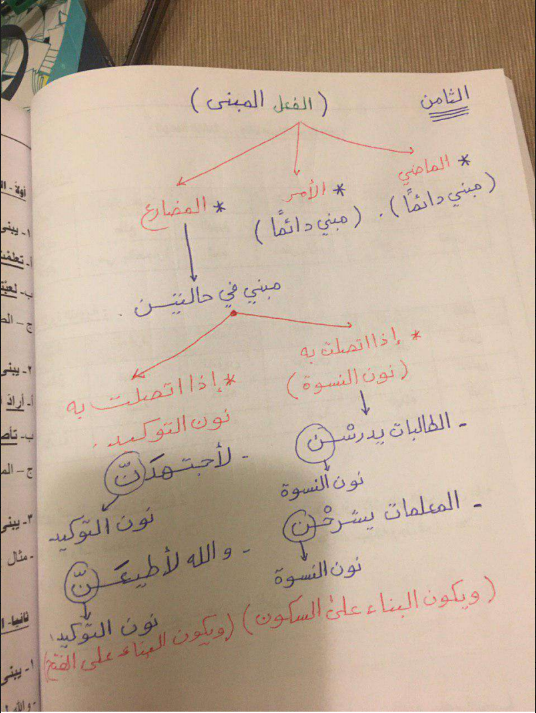 الثامن
(الفعل المبنى)
* الماضي
(مبني دائمًا).
* الأمر
(مبني دائمًا)
* المضارع
مبني في حالتين.
* إذا اتصلت به
(نون النسوة)
- الطالبات يدرسْـن
نون النسوة
- المعلمات يشرحْـن
نون النسوة
(ويكون البناء على السكون)
* إذا اتصلت به
نون التوكيد.
- لأجتهدَنّ
نون التوكيد
- والله لأطيعَـنّ
نون التوكيد.
(ويكون البناء على الفتح)
١- يبنى
٢- يبنى
أ- أراد
٣- يبنى
- مثال
ثانيا-
١- يبنى